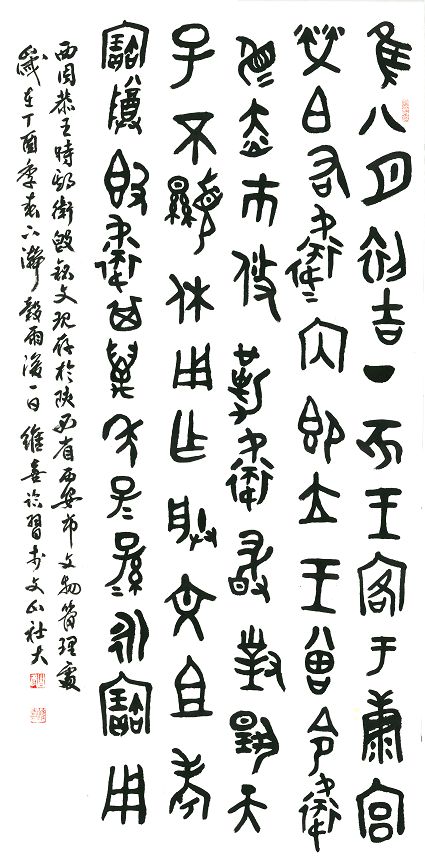 隹八月初吉丁亥王客于康宮
榮白右衛内即立王曾令衛
殷赤巿攸勒衛敢對揚天
子不顯休用乍朕文且考
寶尊𣪘衛其萬年子子孫孫永寶用
西周恭王時期衛𣪘銘文現存於陝西省西安市文物管理處
歲在丁酉季春下澣穀雨後一日維喜臨習於文山社大